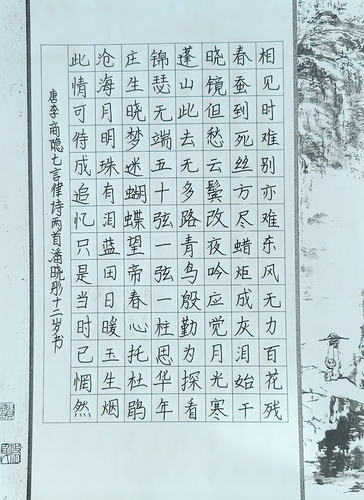 相见时难别亦难东风无力百花残
春蚕到死丝方尽蜡炬成灰泪始干
晓镜但愁云鬓改夜吟应觉月光寒
蓬山此去无多路青鸟殷勤为探看
锦瑟无端五十弦一弦一柱思华年
庄生晓梦迷蝴蝶望帝春心托杜鹃
沧海月明珠有泪蓝田日暖玉生烟
此情可待成追忆只是当时已惘然
唐李商隐七言律诗两首潘晓彤十二岁书